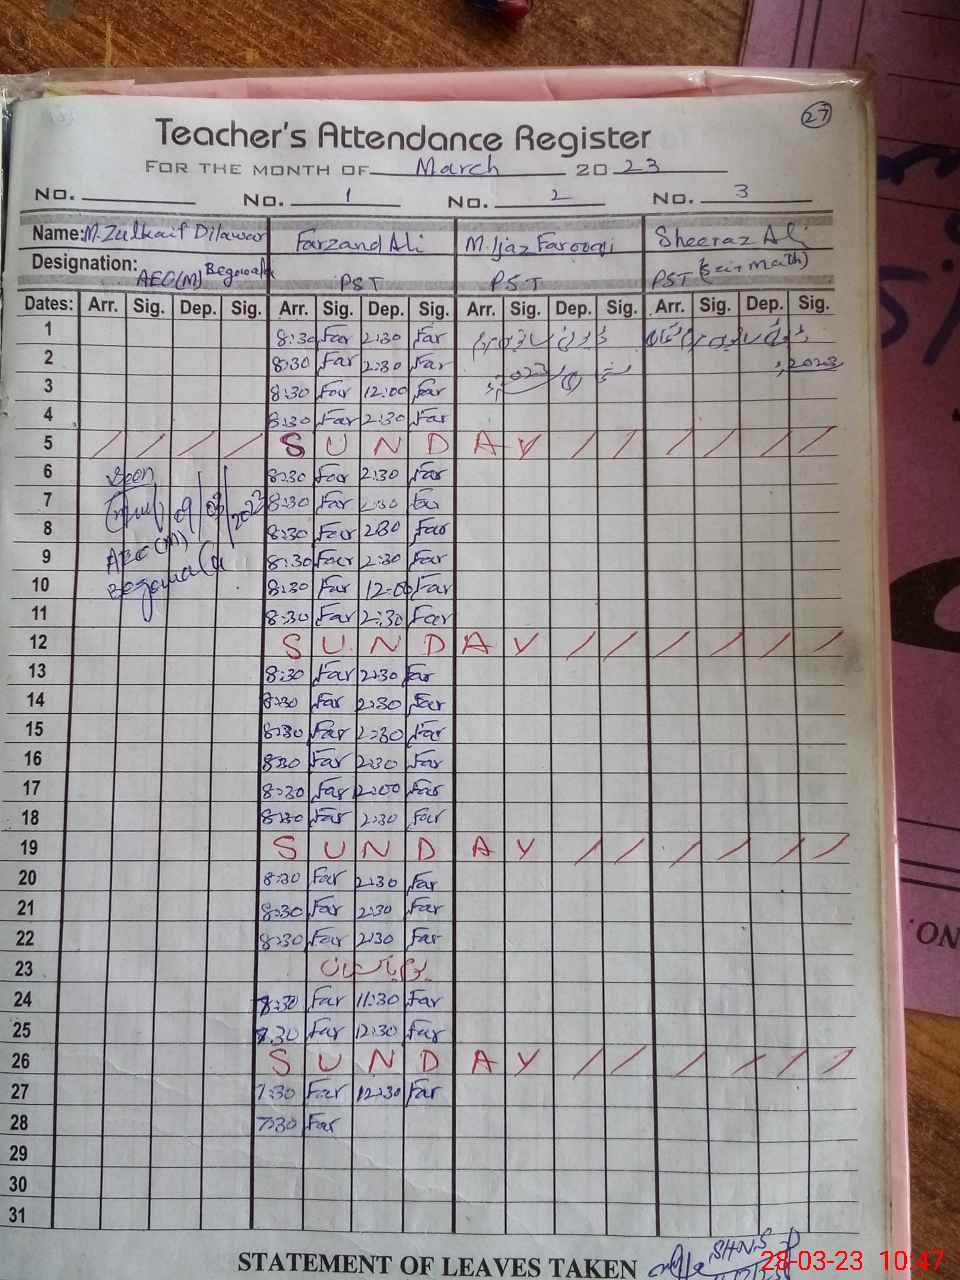 27
Teacher's Attendance Register
FOR THE MONTH OF March 20 23
No. No. 1 No. 2 No. 3
Name: M. Zulkaif Dilawar Farzand Ali M. Ijaz Farooqi Sheeraz Ali
Designation: AEO(M) Begowala PST PST PST (Sci + Math)
Dates: Arr. Sig. Dep. Sig. Arr. Sig. Dep. Sig. Arr. Sig. Dep. Sig. Arr. Sig. Dep. Sig.
1 8:30 Far 2:30 Far
2 8:30 Far 2:30 Far 2023 2023
3 8:30 Far 12:00 Far
4 8:30 Far 2:30 Far
5 / / / / S U N D A Y / / / / / /
6 Seen 8:30 Far 2:30 Far
7 09/03/2023 8:30 Far 2:30 Far
8 AEO(M) 8:30 Far 2:30 Far
9 Begowala 8:30 Far 2:30 Far
10 8:30 Far 12:00 Far
11 8:30 Far 2:30 Far
12 S U N D A Y / / / / / /
13 8:30 Far 2:30 Far
14 8:30 Far 2:30 Far
15 8:30 Far 2:30 Far
16 8:30 Far 2:30 Far
17 8:30 Far 12:00 Far
18 8:30 Far 2:30 Far
19 S U N D A Y / / / / / /
20 8:30 Far 2:30 Far
21 8:30 Far 2:30 Far
22 8:30 Far 2:30 Far
23 یوم پاکستان
24 8:30 Far 11:30 Far
25 7:30 Far 12:30 Far
26 S U N D A Y / / / / / /
27 7:30 Far 12:30 Far
28 7:30 Far
29
30
31
STATEMENT OF LEAVES TAKEN
28-03-23 10:47
NO.